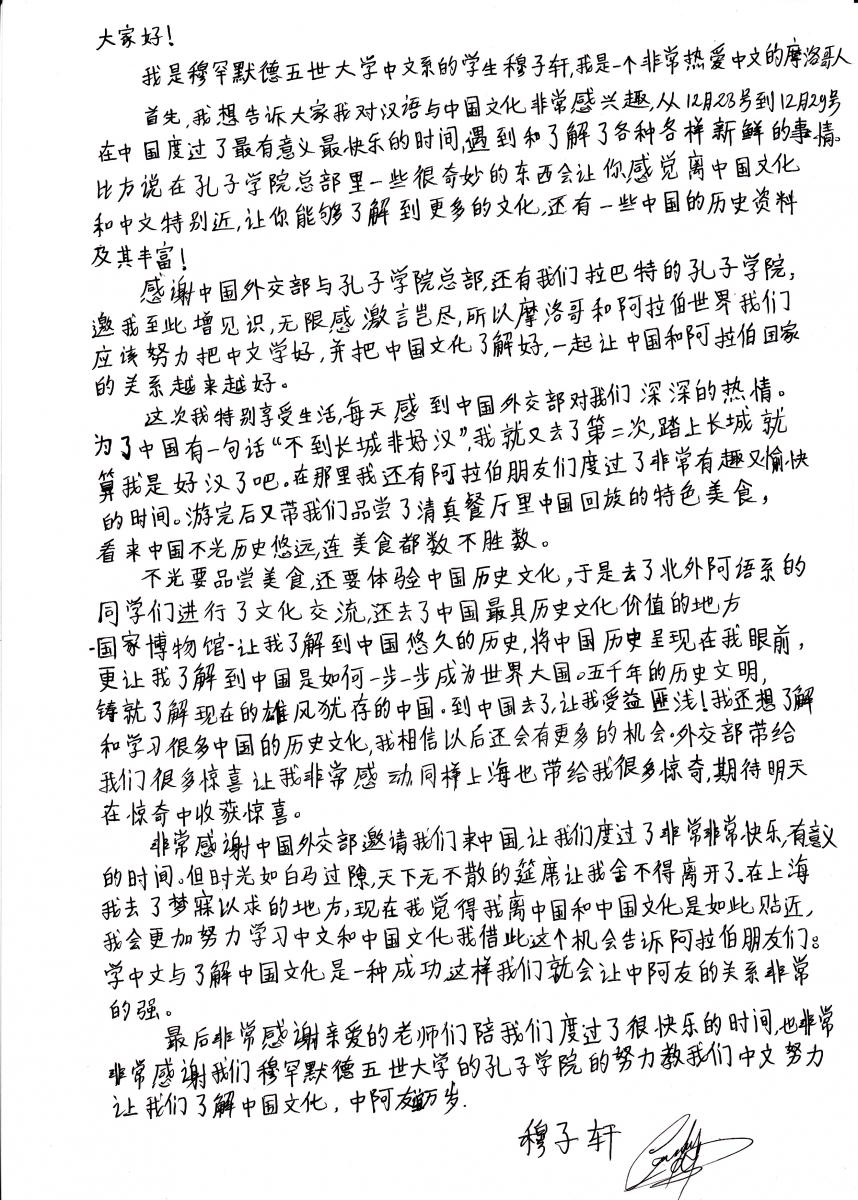 大家好！
我是穆罕默德五世大学中文系的学生穆子轩，我是一个非常热爱中文的摩洛哥人
首先，我想告诉大家我对汉语与中国文化非常感兴趣，从12月23号到12月29号
在中国度过了最有意义最快乐的时间，遇到和了解了各种各样新鲜的事情。
比方说在孔子学院总部里一些很奇妙的东西会让你感觉离中国文化
和中文特别近，让你能够了解到更多的文化，还有一些中国的历史资料
及其丰富！
感谢中国外交部与孔子学院总部，还有我们拉巴特的孔子学院，
邀我至此增见识，无限感激言岂尽，所以摩洛哥和阿拉伯世界我们
应该努力把中文学好，并把中国文化了解好，一起让中国和阿拉伯国家
的关系越来越好。
这次我特别享受生活，每天感到中国外交部对我们深深的热情。
为了中国有一句话“不到长城非好汉”，我就又去了第二次，踏上长城就
算我是好汉了吧。在那里我还有阿拉伯朋友们度过了非常有趣又愉快
的时间。游完后又带我们品尝了清真餐厅里中国回族的特色美食，
看来中国不光历史悠远，连美食都数不胜数。
不光要品尝美食，还要体验中国历史文化，于是去了北外阿语系的
同学们进行了文化交流，还去了中国最具历史文化价值的地方
-国家博物馆-让我了解到中国悠久的历史，将中国历史呈现在我眼前，
更让我了解到中国是如何一步一步成为世界大国。五千年的历史文明，
铸就了解现在的雄风犹存的中国。到中国去了，让我受益匪浅！我还想了解
和学习很多中国的历史文化，我相信以后还会有更多的机会。外交部带给
我们很多惊喜让我非常感动，同样上海也带给我很多惊奇，期待明天
在惊奇中收获惊喜。
非常感谢中国外交部邀请我们来中国，让我们度过了非常非常快乐，有意义
的时间。但时光如白马过隙，天下无不散的筵席让我舍不得离开了。在上海
我去了梦寐以求的地方，现在我觉得我离中国和中国文化是如此贴近，
我会更加努力学习中文和中国文化我借此这个机会告诉阿拉伯朋友们：
学中文与了解中国文化是一种成功，这样我们就会让中阿友的关系非常
的强。
最后非常感谢亲爱的老师们陪我们度过了很快乐的时间，也非常
非常感谢我们穆罕默德五世大学的孔子学院的努力教我们中文努力
让我们了解中国文化，中阿友谊万岁.
穆子轩